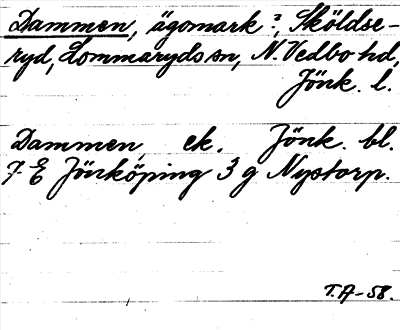 Dammen, ägomark?, Sköldse-
ryd, Lommaryds sn, N. Vedbo hd,
Jönk. l.
Dammen ek. Jönk. bl.
7 E Jönköping 3 g Nystorp.
T.A-58.